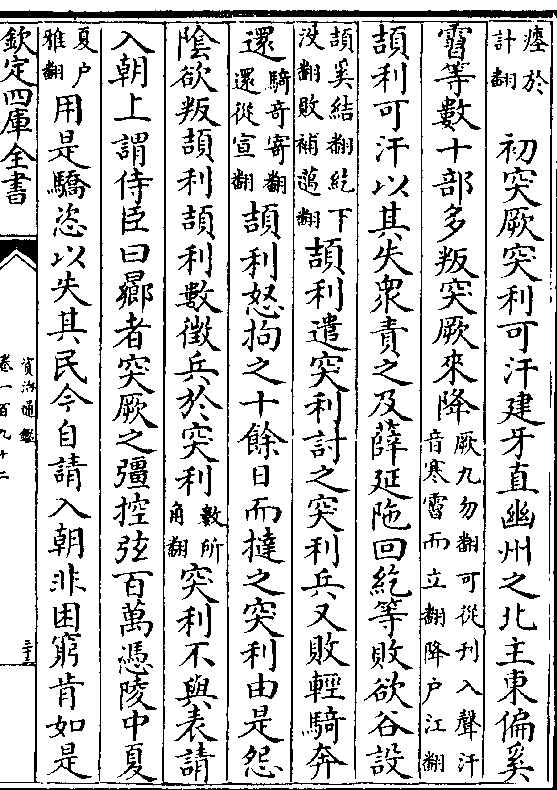 瘞於計翻 初突厥突利可汗建牙直幽州之北主東偏奚
霫等數十部多叛突厥來降厥九勿翻可從刋入聲汗音寒霫而立翻降户江翻
頡利可汗以其失衆責之及薛延陁回紇等敗欲谷設
頡奚結翻紇下没翻敗補邁翻頡利遣突利討之突利兵又敗輕騎奔
還騎奇寄翻還從宣翻頡利怒拘之十餘日而撻之突利由是怨
陰欲叛頡利頡利數徴兵於突利數所角翻突利不與表請
入朝上謂侍臣曰曏者突厥之彊控弦百萬憑陵中夏
夏户雅翻用是驕恣以失其民今自請入朝非困窮肯如是
欽定四庫全書
資治通鑑
卷一百九十二